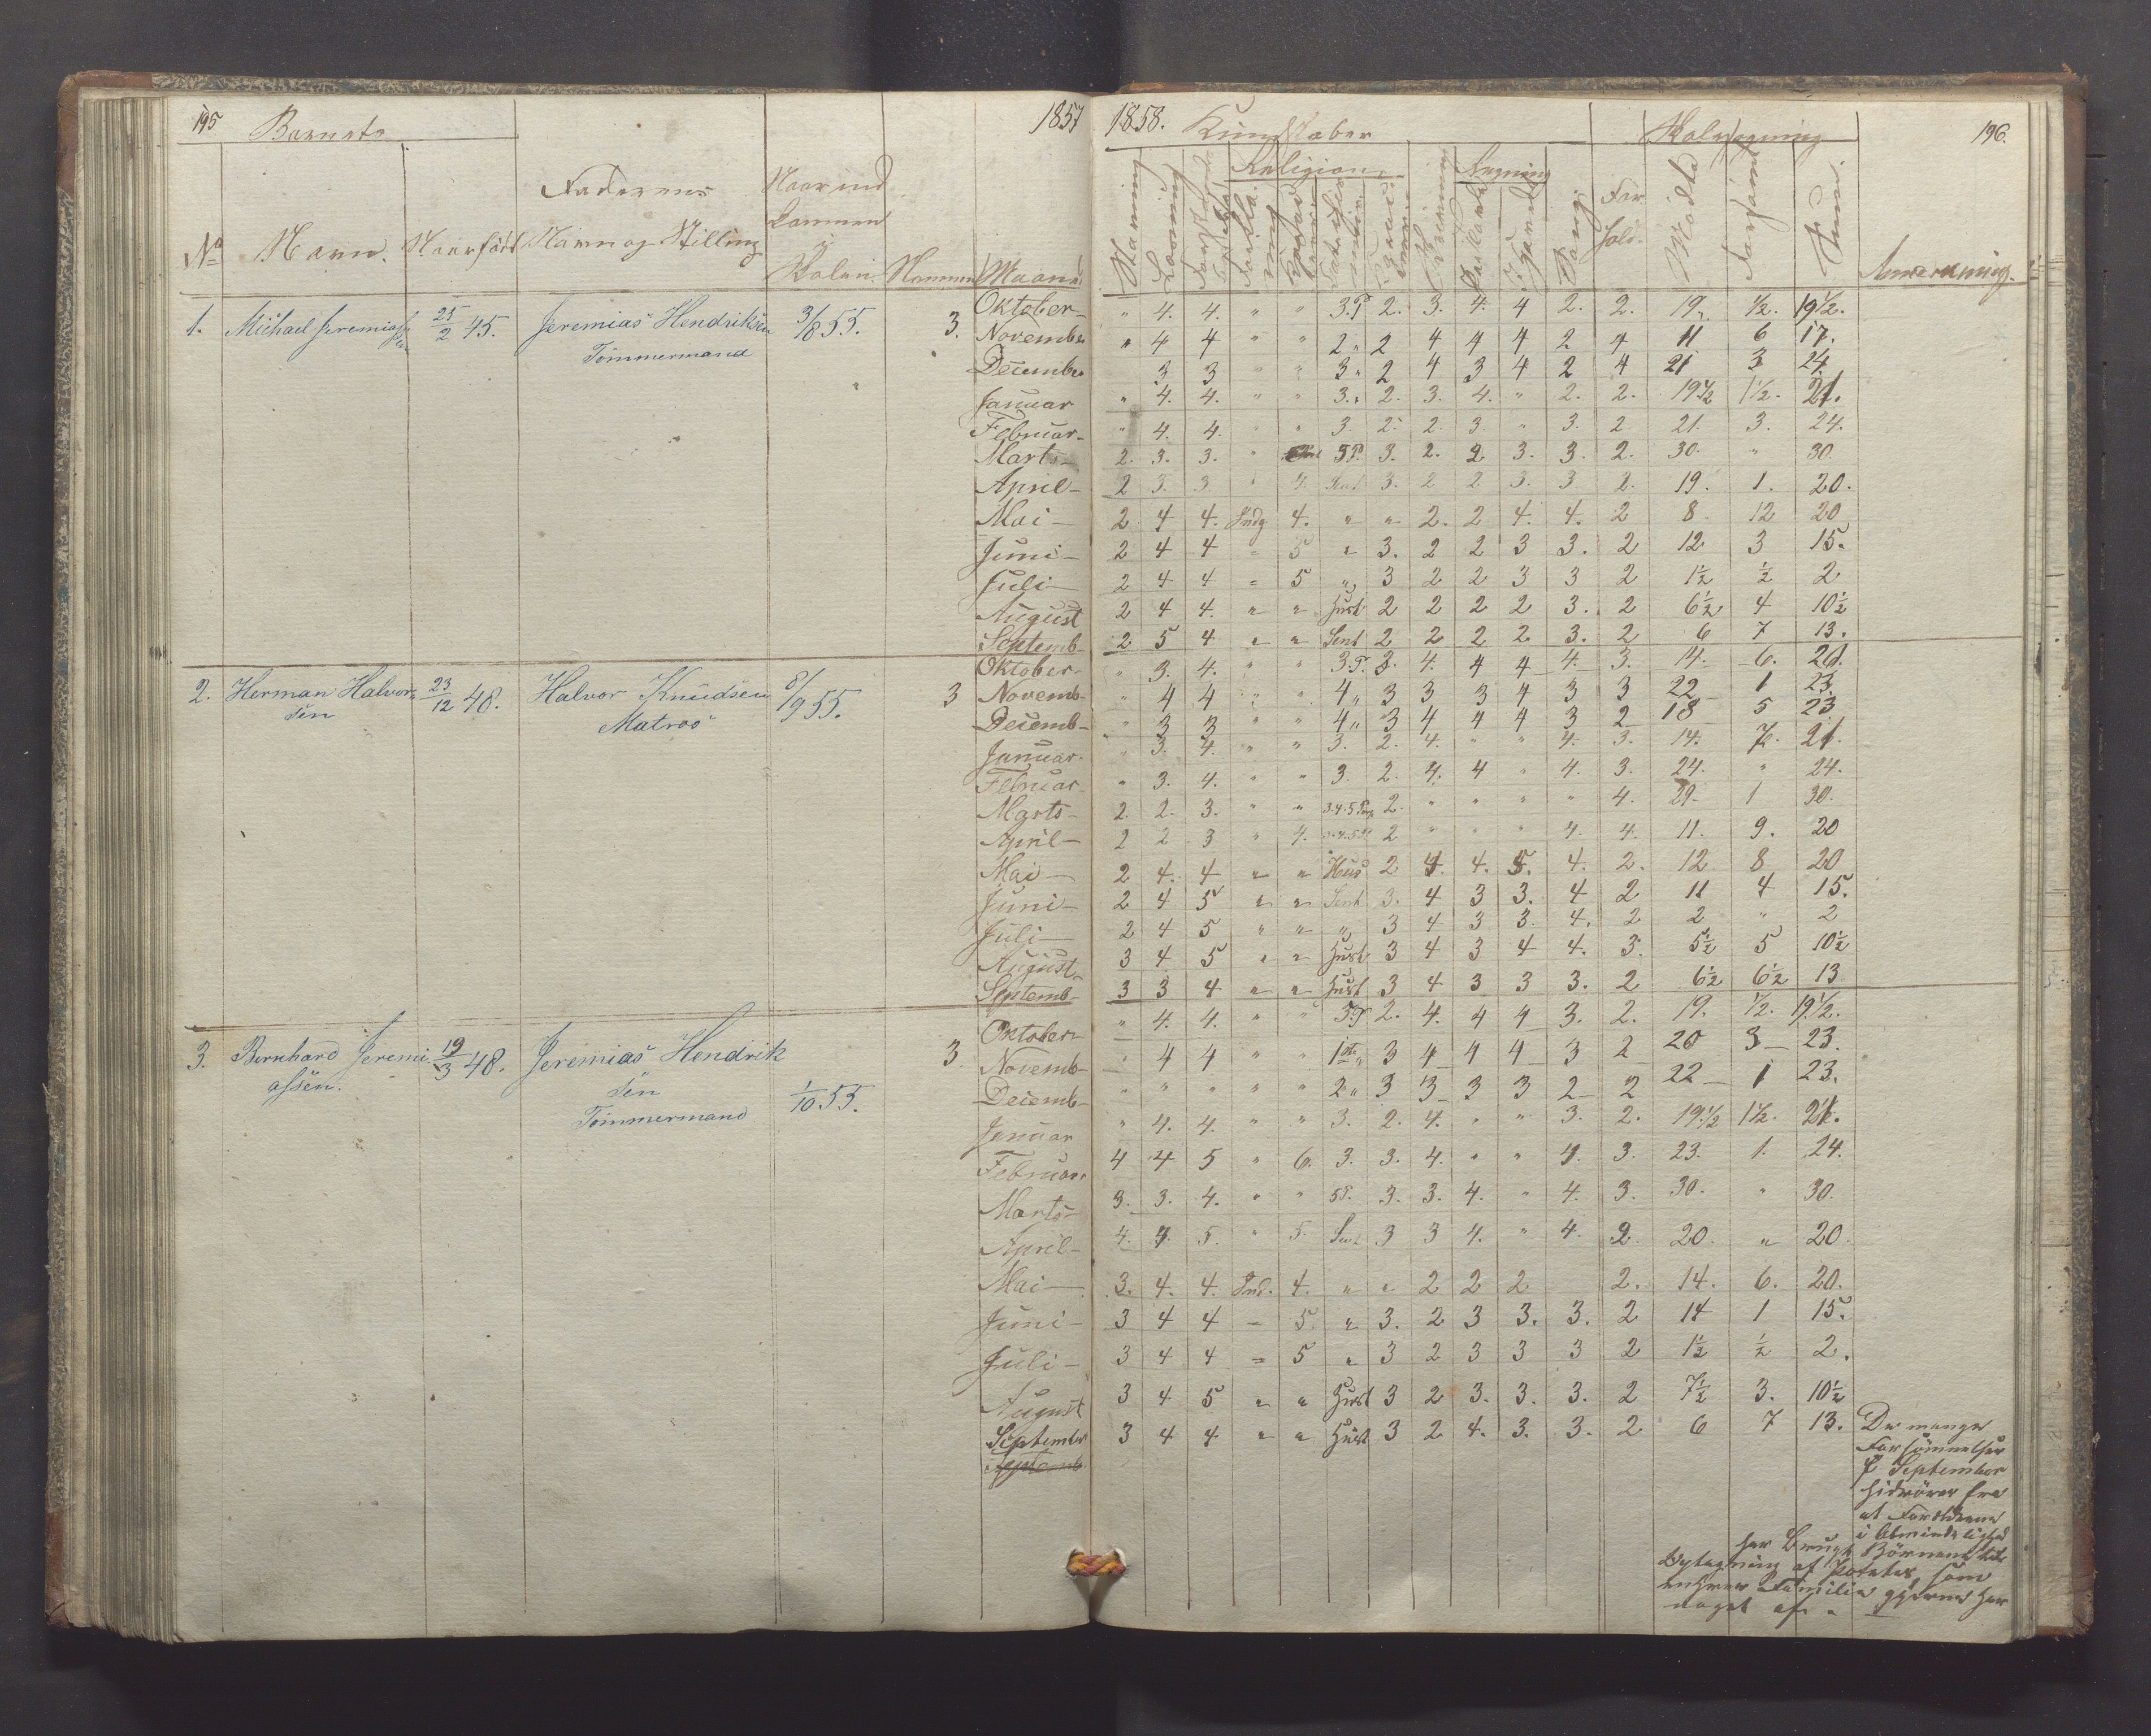 195 Barnets 1857
Faderens Naar ind
kommen
i
No Navn. Naar född Navn og Stilling Skolen. Nummer Maaned
1. Michael Jeremiassen 25/2 45. Jeremias Hendriksen 3/8 55. 3.
Tömmermand
Oktober
November
December
Januar
Februar
Marts
April
Mai
Juni
Juli
August
Septemb
2. Herman Halvor 23/12 48. Halvor Knudsen 8/9 55. 3
sen Matros
Oktober
Novemb
Decemb
Januar
Februar
Marts
April
Mai
Juni
Juli
August
Septemb
3. Bernhard Jeremi 19/3 48. Jeremias Hendrik 1/10 55. 3
assen. sen
Tömmermand
Oktober
Novemb
Decemb
Januar
Februar
Marts
April
Mai
Juni
Juli
August
September
1858. Kundskaber Skolesögning 196.
Religion Regning
Skrivning Læsning Sang For hold. Mödte Forsömt Sum. Anmærkning.
" 4. 4. " " 3.P 2. 3. 4. 4 2. 2. 19. 1/2. 19 1/2.
" 4 4 " " 2 " 2 4 4 4 2 4 11 6 17.
3 3 " " 3 " 2 4 3 4 2 4 21 3 24
" 4. 4. " " 3. " 2. 3. 4. " 2. 2. 19 1/2 1 1/2. 21.
" 4. 4. " " 3. 2. 2. 3. " 3. 2 21. 3. 24.
2. 3. 3. " 5P. 3. 2. 2. 3. 3. 2. 30. " 30.
2 3. 3. " 4. 3. 2 2 3. 3 2. 19. 1. 20.
2 4 4. Indg 4. " " 2. 2 4. 4. 2 8 12 20
2 4 4 " 5 " 3. 2 2 3 3. 2 12 3 15.
2 4 4 " 5 " 3 2 2 3 3 2 1 1/2 1/2 2
2 4 4. " " Hust 2 2 2 2 3. 2 6 1/2 4 10 1/2
2 5 4 " " Sent 2 2 2 2 3. 2 6 7 13.
" 3. 4. " " 3.P. 3. 4. 4 4 4. 3. 14. 6. 20.
" 4 4 " " 4 " 3 3 3 4 3 3 22 1 23.
" 3 3 " " 4 " 3 4 4 4 3 2 18 5 23
" 3. 4. " " 3. 2. 4. " " 4. 3. 14. 7. 21.
" 3. 4. " " 3. 2. 4. 4 " 4. 3. 24. " 24.
2. 2. 3. " " 3.4.5 2. " " " " 4. 29. 1 30.
2 2 3 " 4. 2 " " " 4. 4. 11. 9. 20
2 4. 4 " " Hus 2 4. 4. 5. 4. 2. 12 8 20
2 4 5 " " Sent 3. 4 3 3. 4 2 11 4 15.
2 4 5 " " " 3 4 3 3. 4. 2 2 " 2
3 4 5 " " Hust 3 4 3 4 4. 3. 5 1/2 5 10 1/2
3 3 4 " " Hust 3 4 3 3 3. 2 6 1/2 6 1/2 13
" 4. 4. " " 3.P 2. 4. 4 4 3. 2. 19. 1/2. 19 1/2.
" 4 4 " " 3 4 4 4 3 2 20 3 23.
" " " " " 2 " 3 3 3 3 2 2 22 1 23.
" 4. 4. " " 3. 2. 4. " " 3. 2. 19 1/2 1 1/2. 21.
4 4 5 " 6. 3. 3. 4. " " 4. 3. 23. 1. 24.
3. 3. 4. " " 5P. 3. 3. 4. " 4. 3. 30. " 30.
4. 4. 5. " 5. Sent 3 3 4. " 4. 2. 20. " 20.
3. 4. 4. Ind. 4. " " 2 2 2 2. 14. 6. 20.
3 4 4 " 5. " 3. 2 3 3. 3. 2 14 1 15.
3 4 4 " 5 " 3 2 3 3 3 2 1 1/2 1/2 2.
3 4 5 " " Hust 3 2 3. 3. 3. 2 7 1/2 3. 10 1/2
3 4 4 " " Hust 3 2 4. 3. 3. 2 6 7 13.
De mange
Forsömmelser
f September
hidrörer fra
at Forældrene
i Almindelighed
har brugt Börnene til
Optagning af Poteter som
enhver Familie gjerne har
noget af.